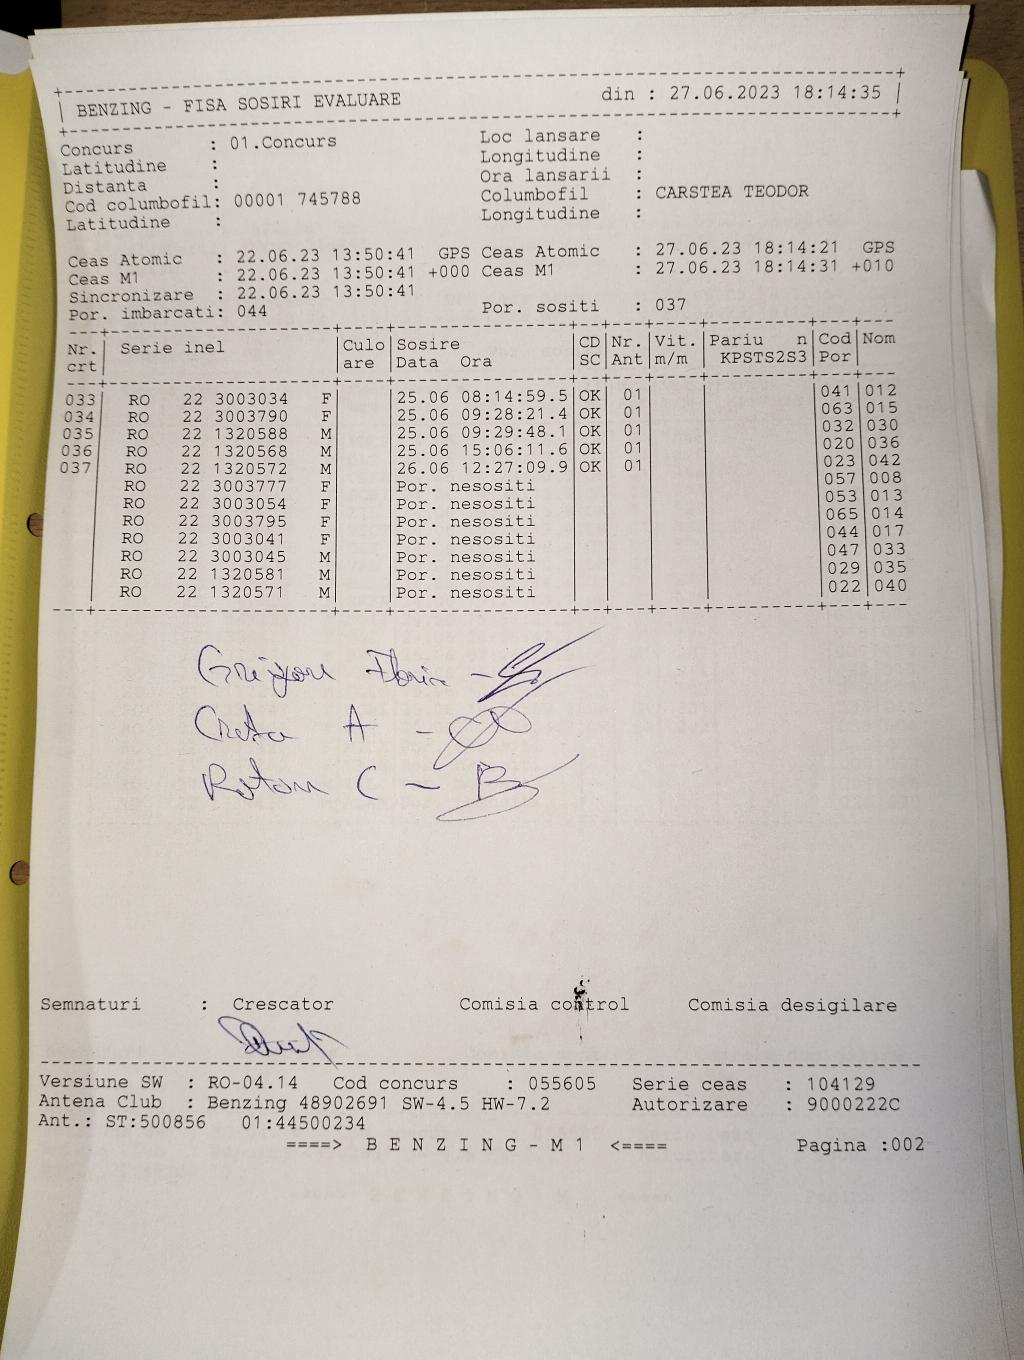 BENZING - FISA SOSIRI EVALUARE din : 27.06.2023 18:14:35
Concurs : 01.Concurs Loc lansare :
Latitudine : Longitudine :
Distanta : Ora lansarii :
Cod columbofil: 00001 745788 Columbofil : CARSTEA TEODOR
Latitudine : Longitudine :
Ceas Atomic : 22.06.23 13:50:41 GPS Ceas Atomic : 27.06.23 18:14:21 GPS
Ceas M1 : 22.06.23 13:50:41 +000 Ceas M1 : 27.06.23 18:14:31 +010
Sincronizare : 22.06.23 13:50:41
Por. imbarcati: 044 Por. sositi : 037
Nr. Serie inel Culo Sosire CD Nr. Vit. Pariu n Cod Nom
crt are Data Ora SC Ant m/m KPSTS2S3 Por
033 RO 22 3003034 F 25.06 08:14:59.5 OK 01 041 012
034 RO 22 3003790 F 25.06 09:28:21.4 OK 01 063 015
035 RO 22 1320588 M 25.06 09:29:48.1 OK 01 032 030
036 RO 22 1320568 M 25.06 15:06:11.6 OK 01 020 036
037 RO 22 1320572 M 26.06 12:27:09.9 OK 01 023 042
RO 22 3003777 F Por. nesositi 057 008
RO 22 3003054 F Por. nesositi 053 013
RO 22 3003795 F Por. nesositi 065 014
RO 22 3003041 F Por. nesositi 044 017
RO 22 3003045 M Por. nesositi 047 033
RO 22 1320581 M Por. nesositi 029 035
RO 22 1320571 M Por. nesositi 022 040
Creta A -
C -
Semnaturi : Crescator Comisia control Comisia desigilare
Versiune SW : RO-04.14 Cod concurs : 055605 Serie ceas : 104129
Antena Club : Benzing 48902691 SW-4.5 HW-7.2 Autorizare : 9000222C
Ant.: ST:500856 01:44500234
====> B E N Z I N G - M 1 <==== Pagina :002